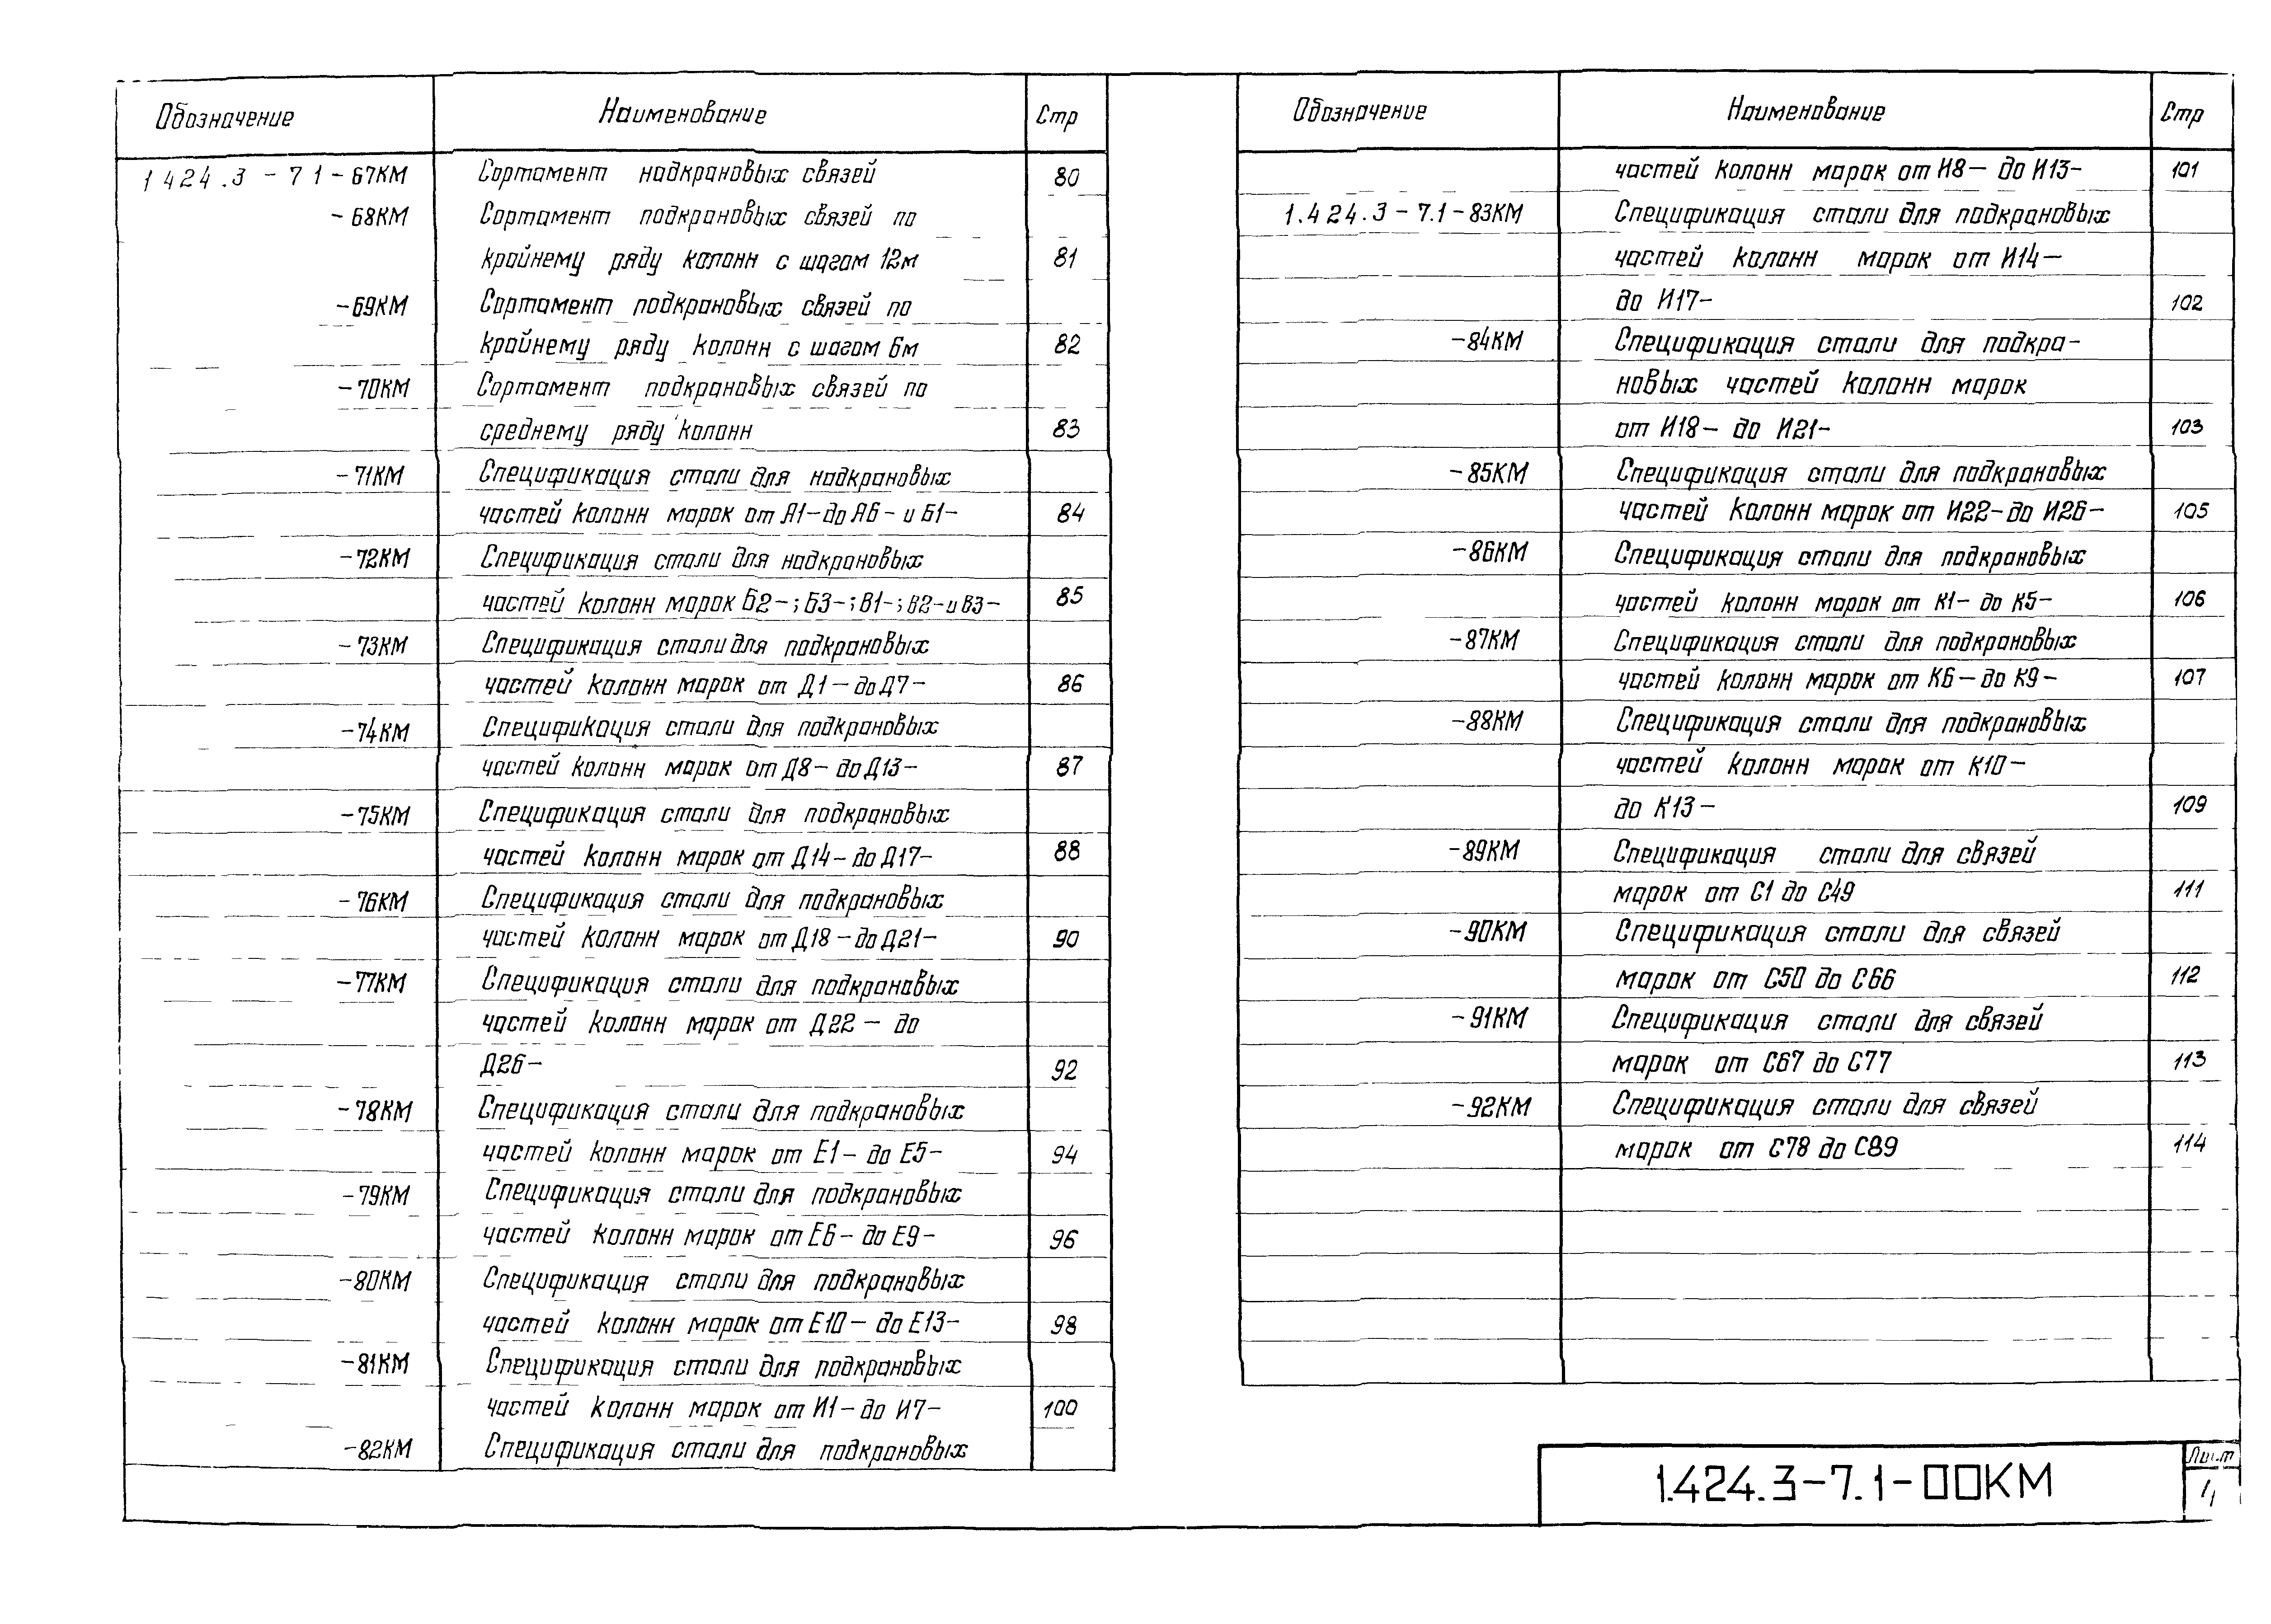 Обозначение Наименование Стр
1 424.3 - 7 1 - 67КМ Сортамент надкрановых связей 80
- 68КМ Сортамент подкрановых связей по
крайнему ряду колонн с шагом 12м 81
- 69КМ Сортамент подкрановых связей по
крайнему ряду колонн с шагом 6м 82
- 70КМ Сортамент подкрановых связей по
среднему ряду колонн 83
- 71КМ Спецификация стали для надкрановых
частей колонн марок от А1- до А6- и Б1- 84
- 72КМ Спецификация стали для надкрановых
частей колонн марок Б2-; Б3-; В1-; В2- и В3- 85
- 73КМ Спецификация стали для подкрановых
частей колонн марок от Д1- до Д7- 86
- 74КМ Спецификация стали для подкрановых
частей колонн марок от Д8- до Д13- 87
- 75КМ Спецификация стали для подкрановых
частей колонн марок от Д14- до Д17- 88
- 76КМ Спецификация стали для подкрановых
частей колонн марок от Д18- до Д21- 90
- 77КМ Спецификация стали для подкрановых
частей колонн марок от Д22- до
Д26- 92
- 78КМ Спецификация стали для подкрановых
частей колонн марок от Е1- до Е5- 94
- 79КМ Спецификация стали для подкрановых
частей колонн марок от Е6- до Е9- 96
- 80КМ Спецификация стали для подкрановых
частей колонн марок от Е10- до Е13- 98
- 81КМ Спецификация стали для подкрановых
частей колонн марок от И1- до И7- 100
- 82КМ Спецификация стали для подкрановых
Обозначение Наименование Стр
частей колонн марок от И8- до И13- 101
1.424.3 - 7.1 - 83КМ Спецификация стали для подкрановых
частей колонн марок от И14-
до И17- 102
- 84КМ Спецификация стали для подкра-
новых частей колонн марок
от И18- до И21- 103
- 85КМ Спецификация стали для подкрановых
частей колонн марок от И22- до И26- 105
- 86КМ Спецификация стали для подкрановых
частей колонн марок от К1- до К5- 106
- 87КМ Спецификация стали для подкрановых
частей колонн марок от К6- до К9- 107
- 88КМ Спецификация стали для подкрановых
частей колонн марок от К10-
до К13- 109
- 89КМ Спецификация стали для связей
марок от С1 до С49 111
- 90КМ Спецификация стали для связей
марок от С50 до С66 112
- 91КМ Спецификация стали для связей
марок от С67 до С77 113
- 92КМ Спецификация стали для связей
марок от С78 до С89 114
1.424.3-7.1-00КМ
Лист
4